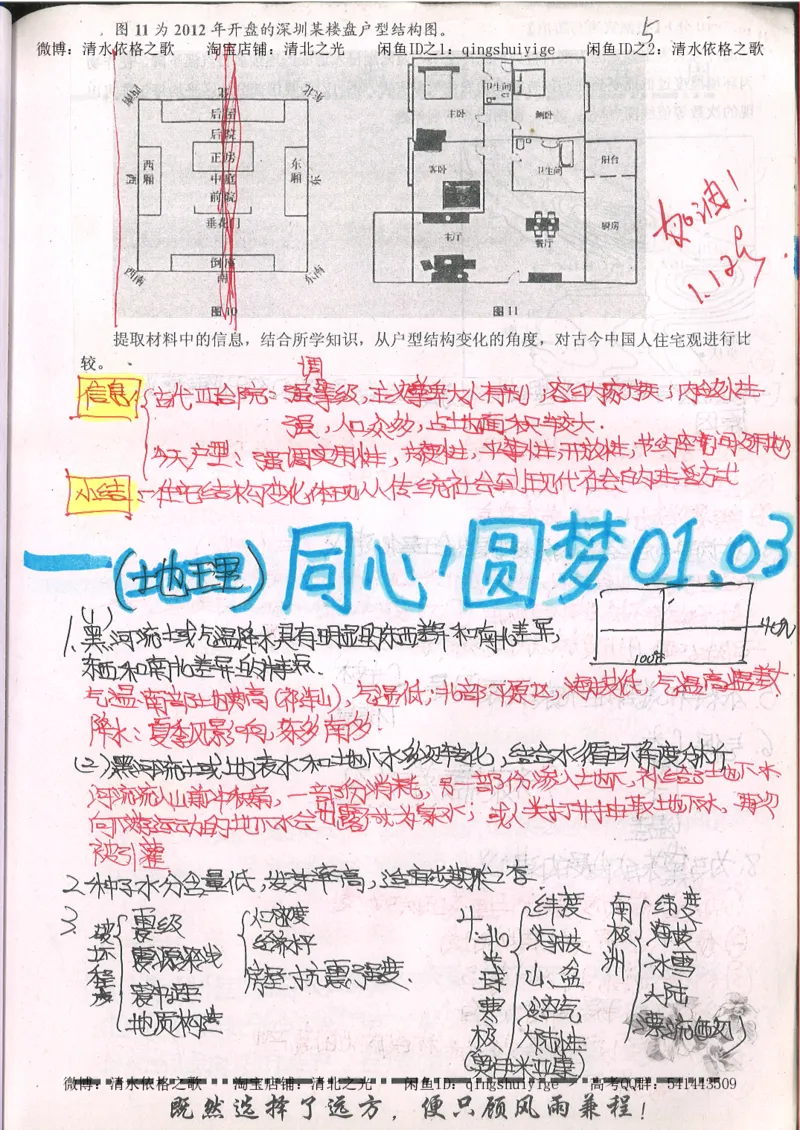 图 11 为 2012 年开盘的深圳某楼盘户型结构图。
5
微博：清水依格之歌 淘宝店铺：清北之光 闲鱼ID之1：qingshuiyige 闲鱼ID之2：清水依格之歌
西南 北 东北
后罩
后院
正房
西厢 中庭 东厢
西 东
前院
垂花门
倒座
西南 南 东南
图 10
主卧 卫生间 侧卧
客卧 卫生间 阳台
主厅 餐厅 厨房
图 11
加油！
1.12
提取材料中的信息，结合所学知识，从户型结构变化的角度，对古今中国人住宅观进行比
较。
信息 古代四合院：强调等级，主次尊卑大小有别；家庭内院式；内敛性
强，人口众多，占地面积较大。
今天户型：强调实用性，方便性，平等性，开放性，节约空间与用地
小结 住宅结构变化体现人从传统社会到现代社会的生活方式
一（地理）同心，圆梦01.03
1.(1)黑河流域气温降水具有明显的东西差异和南北差异，
东西和南北差异的情景
40°N
100°E
气温：南部地势高（祁连山），气温低；北部为高原，海拔低，气温高
降水：夏季风影响，东多南多.
(2)黑河流域地表水和地下水多次转化，结合水循环角度分析
河流流入山前冲积扇，一部分消耗，另一部分渗入地下，补给了地下水
向下游运动的地下水会出露成为泉水；或人类打井抽取地下水，再次
被引灌
2.种子水分含量低，发芽率高，适宜长期贮存
3. 破坏程度 震级 震源深浅 震中距 地质构造
人口密度 经济水平 房屋抗震强度.
4. 北半球寒极 纬度 海拔 山、盆 冷空气 大陆性
(奥伊米亚康)
南极洲 纬度 海拔 冰雪 大陆 寒流(西风)
微博：清水依格之歌 淘宝店铺：清北之光 闲鱼ID：qingshuiyige 高考QQ群：541443509
既然选择了远方，便只顾风雨兼程！